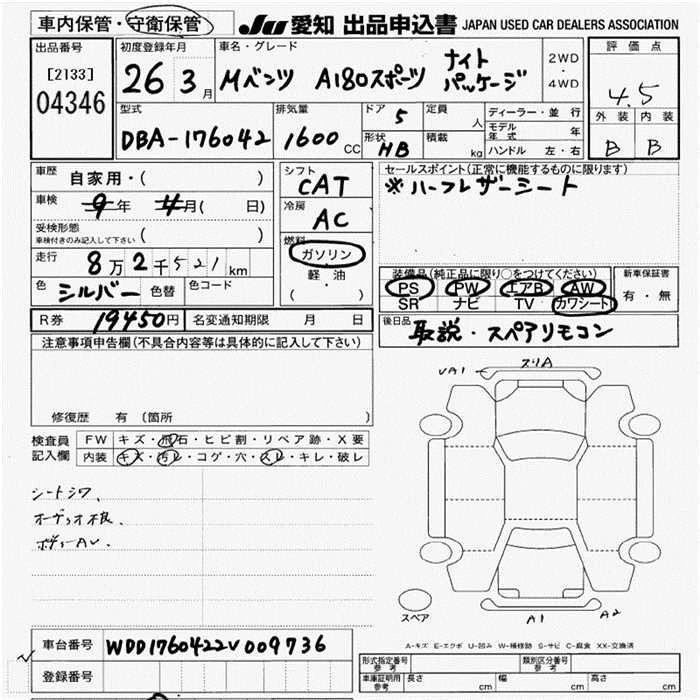 車内保管・守衛保管 JU 愛知 出品申込書 JAPAN USED CAR DEALERS ASSOCIATION
出品番号 初度登録年月 車名・グレード 2WD・4WD 評価点
[2133] 04346 26 3月 Mベンツ A180スポーツ ナイトパッケージ 4.5
型式 排気量 ドア 5 定員 人 ディーラー・並行 外装 内装
DBA-176042 1600CC 形状 HB 積載 kg モデル年式 年 B B
ハンドル 左・右
車歴 自家用・( ) シフト CAT セールスポイント(正常に機能するものに限ります)
※ハーフレザーシート
車検 9年 4月( 日) 冷房 AC
受検形態 車検付きのみ記入して下さい ( )
燃料 ガソリン 軽・油 ( )
走行 8万2千521km
装備品(純正品に限り○をつけてください) 新車保証書
PS PW エアB AW 有・無
SR ナビ TV カワシート
色 シルバー 色替 色コード
R券 19450円 名変通知期限 月 日
後日品 取説・スペアリモコン
注意事項申告欄(不具合内容等は具体的に記入して下さい)
修復歴 有 (箇所 )
検査員記入欄 FW キズ・飛石・ヒビ割・リペア跡・X要
内装 キズ・汚レ・コゲ・穴・スレ・キレ・破レ
シートシワ、
ボディーAV.
VA1 スリA
スペア A1 A2
A-キズ E-エクボ U-凹み W-補修跡 S-サビ C-腐食 XX-交換済
車台番号 WDD1760422V009736
登録番号
形式指定番号 参考 類別区分番号 参考
車庫証明用 参考 長さ cm 幅 cm 高さ cm